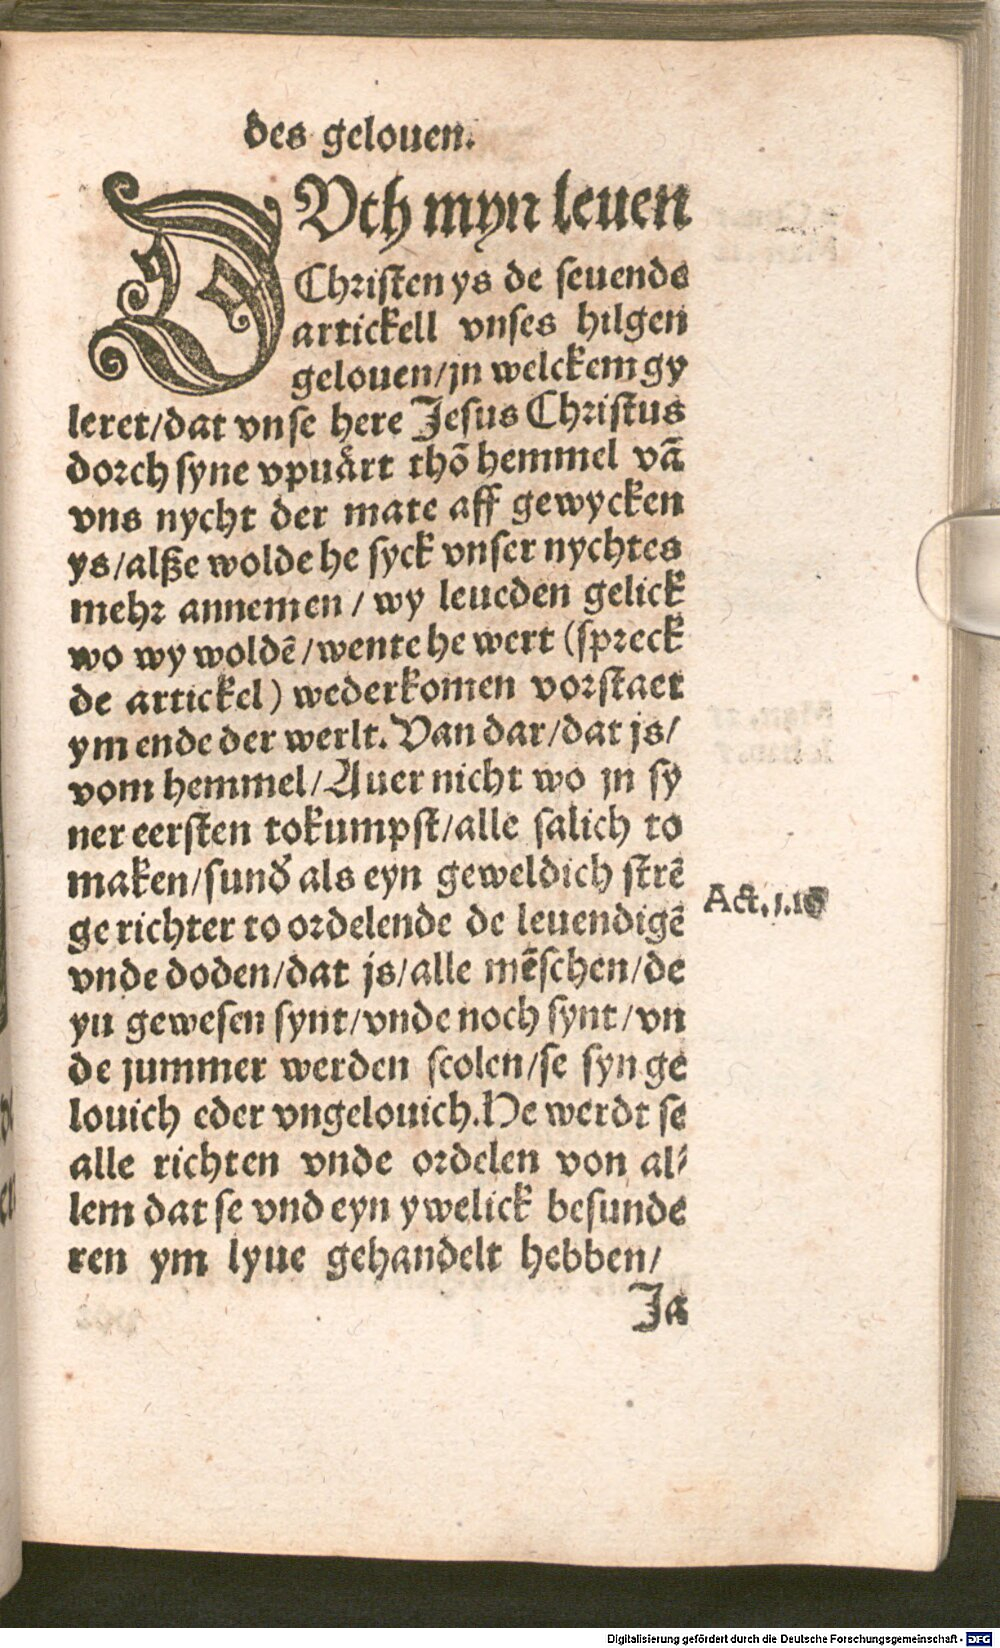 des gelouen.
DVth myn leuen
Christen ys de seuende
artickell vnses hilgen
gelouen/jn welckem gy
leret/dat vnse here Jesus Christus
dorch syne vpuårt thõ hemmel vã
vns nycht der mate aff gewycken
ys/alße wolde he syck vnser nychtes
mehr annemen/ wy leueden gelick
wo wy woldẽ/wente he wert (spreck
de artickel) wederkomen vorstaet
ym ende der werlt. Van dar/dat js/
vom hemmel/Auer nicht wo jn sy
ner eersten tokumpst/alle salich to
maken/sund̛ als eyn geweldich strẽ
ge richter to ordelende de leuendigẽ
vnde doden/dat js/alle mẽschen/de
yu gewesen synt/vnde noch synt/vn
de jummer werden scolen/se syn ge
louich eder vngelouich. He werdt se
alle richten vnde ordelen von al⸗
lem dat se vnd eyn ywelick besunde
ren ym lyue gehandelt hebben/
Act. 1.
Ja
Digitalisierung gefördert durch die Deutsche Forschungsgemeinschaft - DFG